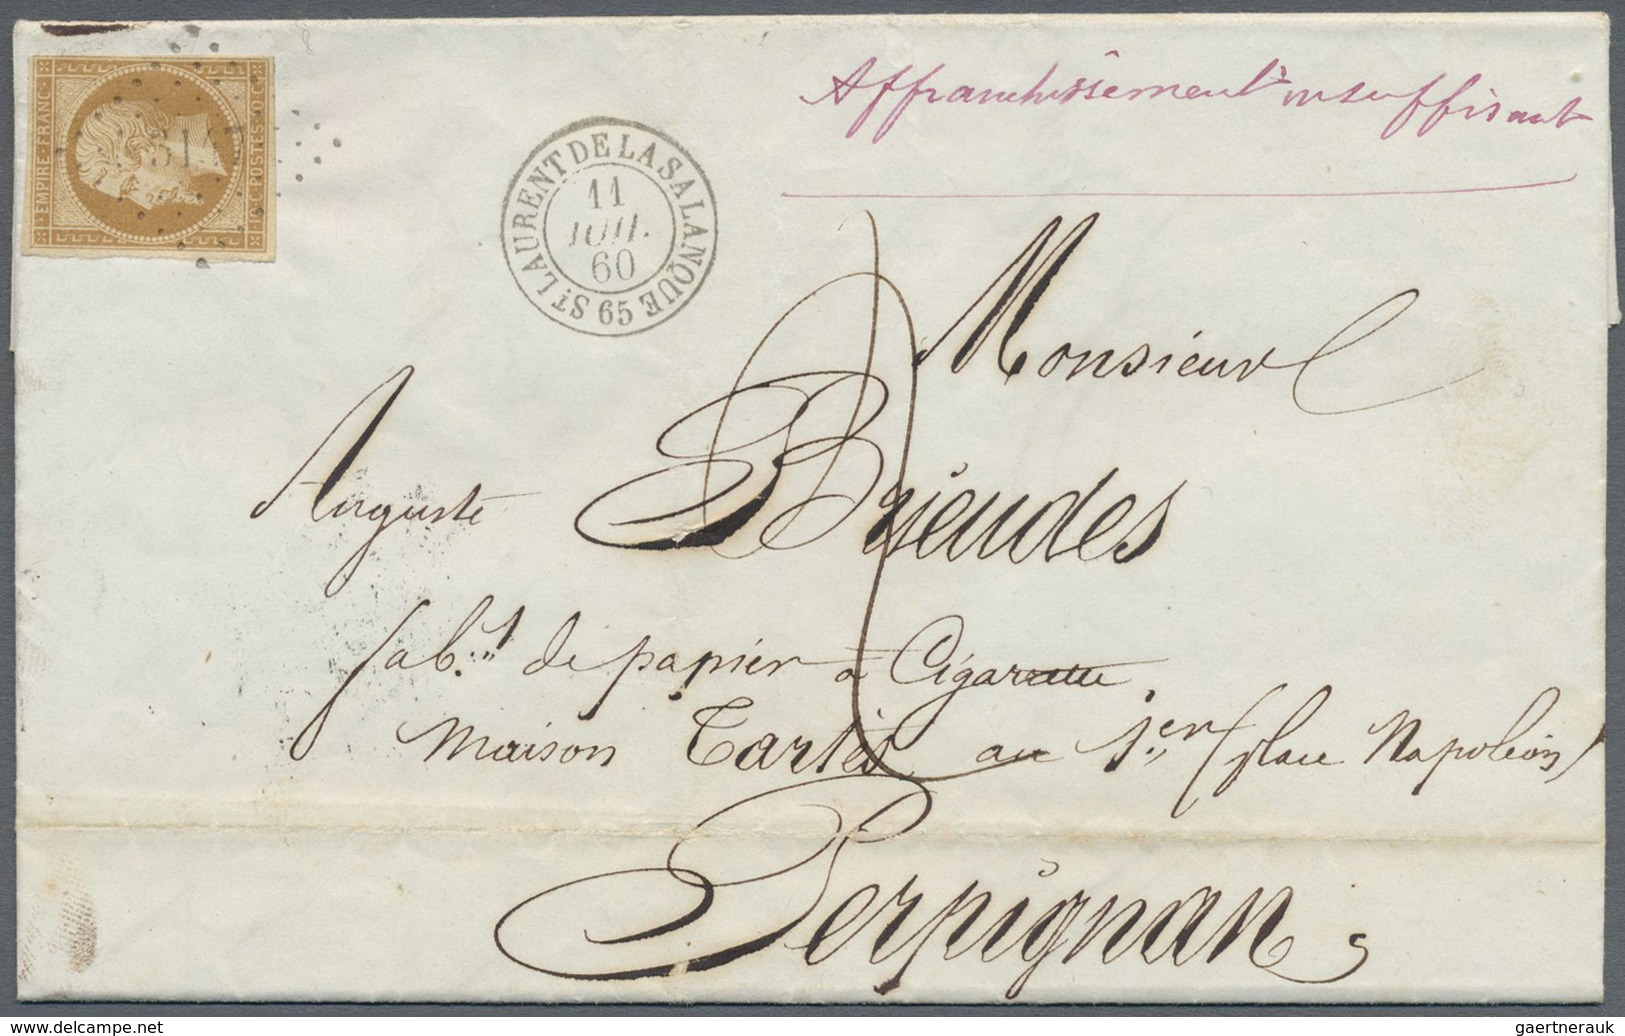 EMPIRE · FRANC ·
10 C · POSTES · 10 C ·
Affranchissement insuffisant
ST LAURENT DE LA SALANQUE
11
JUIL.
60
65
Monsieur
Auguste
fab.t de papier à Cigarette
Maison Tartès au 1.er (place Napoléon)
Perpignan
gaertnerauk @ www.delcampe.net